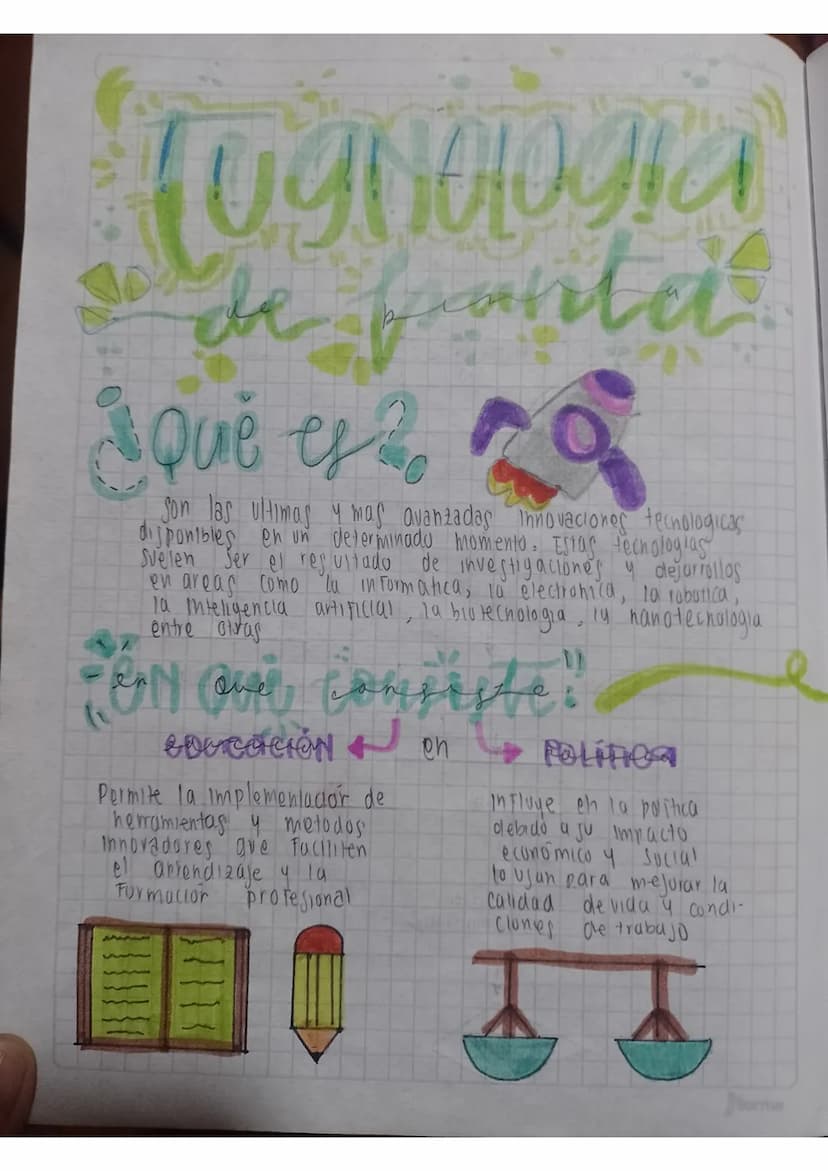 Tecgnología
de punta
¿Qué es?
Son las ultimas y mas avanzadas innovaciones tecnologicas
disponibles en un determinado momento. Estas tecnologias
suelen ser el resultado de investigaciones y desarrollos
en areas como la informatica, la electronica, la robotica,
la inteligencia artificial, la biotecnologia, la nanotecnologia
entre otras
En que consiste!
EDUCACIÓN en POLÍTICA
Permite la implementacion de
herramientas y metodos
innovadores que faciliten
el aprendizaje y la
Formacion profesional
Influye en la politica
debido a su impacto
económico y social
lo usan para mejorar la
calidad de vida y condi-
ciones de trabajo